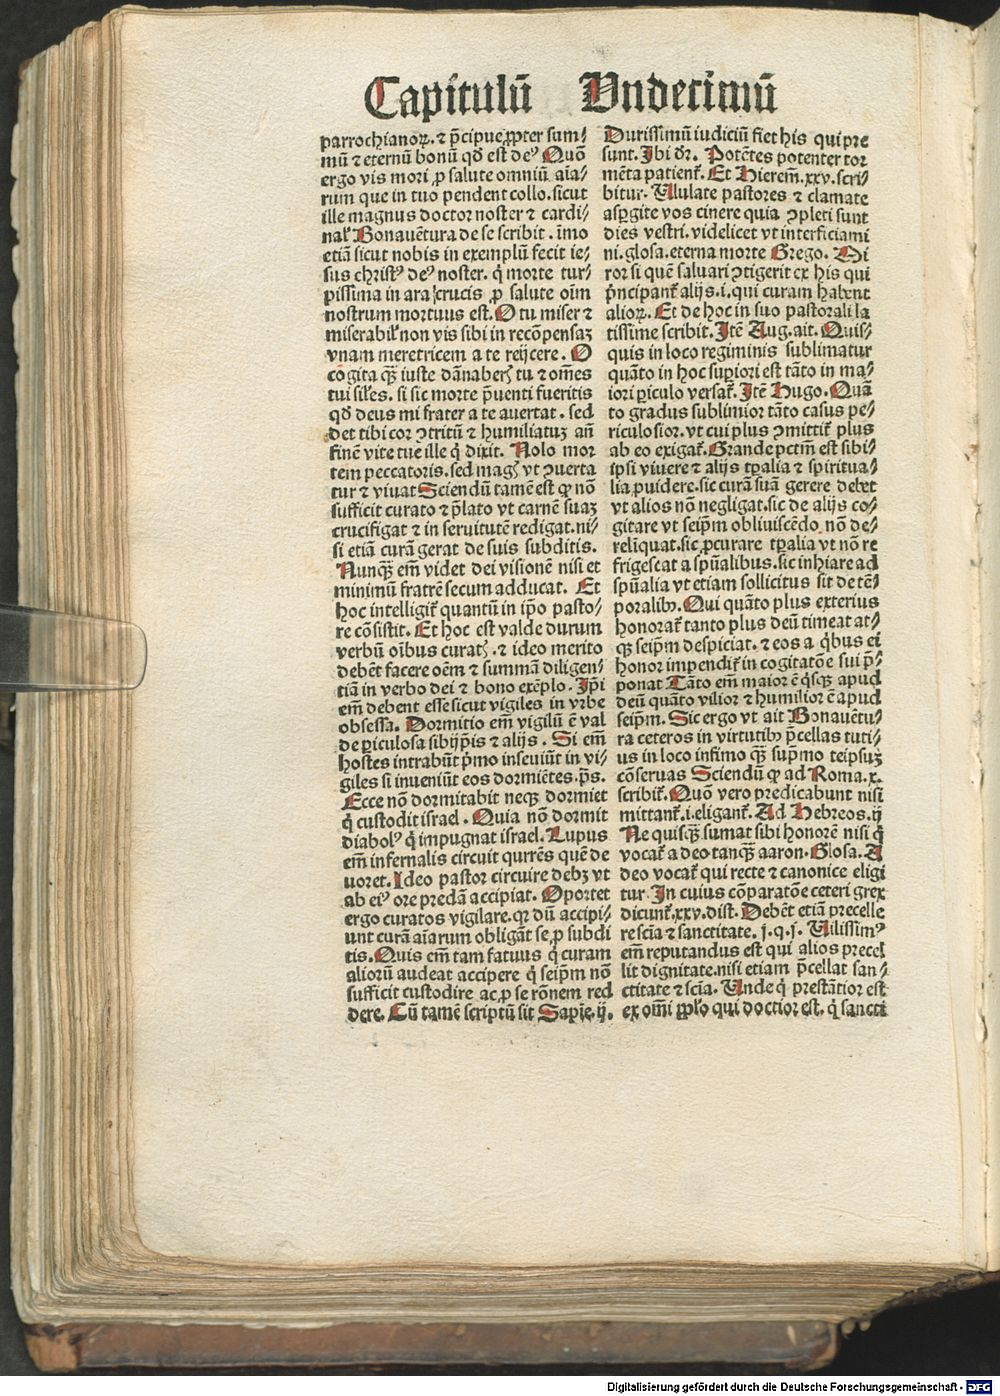 Capitulū Undecimū
parrochianoꝝ. ⁊ p̄cipue ꝓpter sum⸗
mū ⁊ eternū bonū qd̄ est deꝰ Quō
ergo vis mori ꝓ salute omniū aīa⸗
rum que in tuo pendent collo. sicut
ille magnus doctor noster ⁊ cardi⸗
nal̕ Bonauētura de se scribit. īmo
etiā sicut nobis in exemplū fecit ie⸗
sus christꝰ deꝰ noster. q̇ morte tur⸗
pissima in ara crucis ꝓ salute oīm
nostrum mortuus est. O tu miser ⁊
miserabil̕ non vis sibi in recōpensaꝫ
vnam meretricem a te reijcere. O
cōgita qꝫ̄ iuste dānaberꝭ tu ⁊ om̄es
tui sil̕es. si sic morte p̄uenti fueritis
qd̄ deus mi frater a te auertat. sed
det tibi cor ꝯtritū ⁊ humiliatuꝫ añ
finē vite tue ille q̇ dixit. Nolo mor
tem peccatoris. sed magꝭ vt ꝯuerta
tur ⁊ viuat Sciendū tamē est ꝙ nō
sufficit curato ⁊ p̄lato vt carnē suaꝫ
crucifigat ⁊ in seruitutē redigat. ni⸗
si etiā curā gerat de suis subditis.
Nunqꝫ̄ em̄ videt dei visionē nisi et
minimū fratrē secum adducat. Et
hoc intelligit̕ quantū in ip̄o pasto⸗
re cōsistit. Et hoc est valde durum
verbū oībus curatꝭ. ⁊ ideo merito
debēt facere oēm ⁊ summā diligen⸗
tiā in verbo dei ⁊ bono exēplo. Ip̄i
em̄ debent esse sicut vigiles in vrbe
obsessa. Dormitio em̄ vigilū ē val
de ꝑiculosa sibijp̄is ⁊ alijs. Si em̄
hostes intrabūt p̄mo inseuiūt in vi⸗
giles si inueniūt eos dormiētes. ps̄.
Ecce nō dormitabit neqꝫ dormiet
q̇ custodit israel. Quia nō dormit
diabolꝰ q̇ impugnat israel. Lupus
em̄ infernalis circuit qurrēs quē de
uoret. Ideo pastor circuire debꝫ vt
ab eiꝰ ore predā accipiat. Oportet
ergo curatos vigilare. qꝛ dū accipi⸗
unt curā aīarum obligāt se ꝓ subdi
tis. Quis em̄ tam fatuus q̇ curam
aliorū audeat accipere q̇ seip̄m nō
sufficit custodire ac ꝓ se rōnem red
dere. Cū tamē scriptū sit Sapīe. ij.
Durissimū iudiciū fiet his qui pre
sunt. Ibi dr̄. Potētes potenter tor
mēta patient̕. Et Hierem̄. xxv. scri⸗
bitur. Ululate pastores ⁊ clamate
aspergite vos cinere quia ꝯpleti sunt
dies vestri. videlicet vt interficiami
ni. glosa. eterna morte Grego. Mi
ror si quē saluari ꝯtigerit ex his qui
p̄ncipant̕ alijs. i. qui curam habent
alioꝝ. Et de hoc in suo pastorali la
tissime scribit. Itē Aug. ait. Quis⸗
quis in loco regiminis sublimatur
quāto in hoc suꝑiori est tāto in ma⸗
iori ꝑiculo versat̕. Itē Hugo. Quā
to gradus sublimior tāto casus pe⸗
riculosior. vt cui plus ꝯmittit̕ plus
ab eo exigat̕. Grande pctm̄ est sibi⸗
ipsi viuere ⁊ alijs tꝑalia ⁊ spiritua⸗
lia ꝓuidere. sic curā suā gerere debet
vt alios nō negligat. sic de alijs co⸗
gitare vt seip̄m obliuiscēdo nō de⸗
relīquat. sic ꝓcurare tꝑalia vt nō re
frigescat a spūalibus. sic inhiare ad
spūalia vt etiam sollicitus sit de tē⸗
poralibꝫ. Qui quāto plus exterius
honorat̕ tanto plus deū timeat at⸗
qꝫ seip̄m despiciat. ⁊ eos a q̇bus ei
honor impendit̕ in cogitatōe sui p̄⸗
ponat Tāto em̄ maior ē q̇sqꝫ apud
deū quāto vilior ⁊ humilior ē apud
seip̄m. Sic ergo vt ait Bonauētu⸗
ra ceteros in virtutibꝫ p̄cellas tuti⸗
us in loco infimo qꝫ̄ sup̄mo teipsuꝫ
cōseruas Sciendū ꝙ ad Roma. x.
scribit̕. Quō vero predicabunt nisi
mittant̕. i. eligant̕. Ad Hebreos. ij
Ne quisqꝫ̄ sumat sibi honorē nisi q̇
vocat̕ a deo tanqꝫ̄ aaron. Glosa. A
deo vocat̕ qui recte ⁊ canonice eligi
tur. In cuius cōparatōe ceteri grex
dicunt̕. xxv. dist. Debēt etiā precelle
re scīa ⁊ sanctitate. j. q. j. Uilissimꝰ
em̄ reputandus est qui alios precel
lit dignitate. nisi etiam p̄cellat san⸗
ctitate ⁊ scīa. Unde q̇ prestātior est
ex om̄i ppl̕o qui doctior est. q̇ sancti
Digitalisierung gefördert durch die Deutsche Forschungsgemeinschaft - DFG